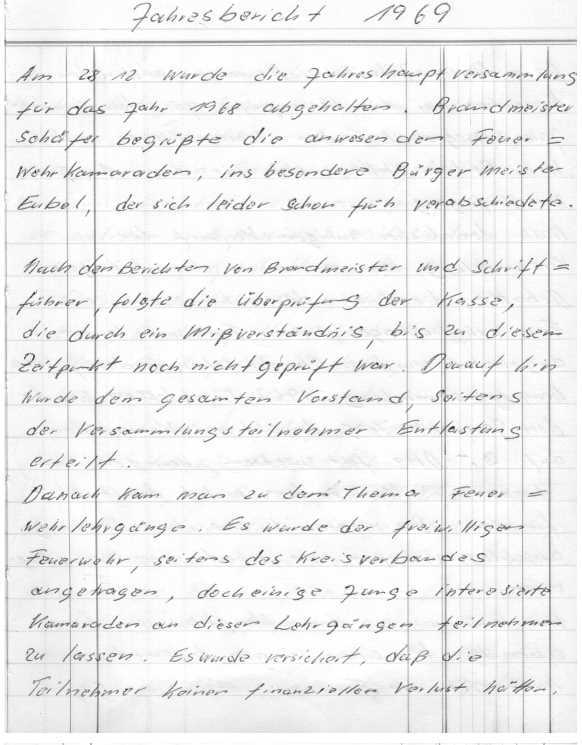 Jahresbericht 1969
Am 28 12 wurde die Jahreshauptversammlung
für das Jahr 1968 abgehalten. Brandmeister
Schäfer begrüßte die anwesenden Feuer=
wehrkamaraden, insbesondere Bürgermeister
Eubel, der sich leider schon früh verabschiedete.
Nach den Berichten von Brandmeister und Schrift=
führer, folgte die Überprüfung der Kasse,
die durch ein Mißverständnis, bis zu diesem
Zeitpunkt noch nicht geprüft war. Darauf hin
wurde dem gesamten Vorstand, seitens
der Versammlungsteilnehmer Entlastung
erteilt.
Danach kam man zu dem Thema Feuer=
wehrlehrgänge. Es wurde der freiwilligen
Feuerwehr, seitens des Kreisverbandes
angetragen, doch einige junge interesierte
Kamaraden an diesen Lehrgängen teilnehmen
zu lassen. Es wurde versichert, daß die
Teilnehmer keinen finanziellen Verlust hätten.